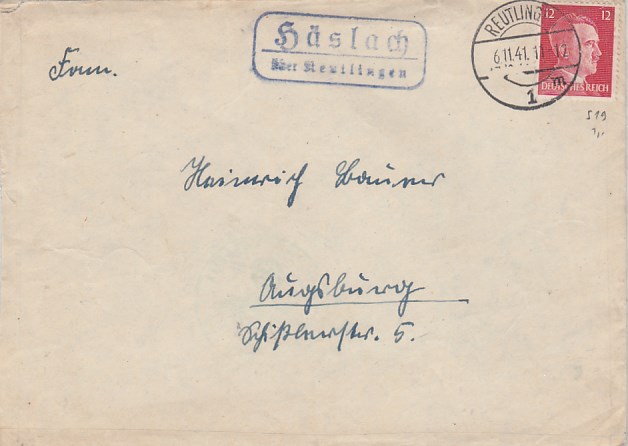 Häslach
über Reutlingen
REUTLING
6.11.41. 1 12
1 m
12 12
DEUTSCHES REICH
519
Heinrich Bauer
Augsburg
Schißlerstr. 5.